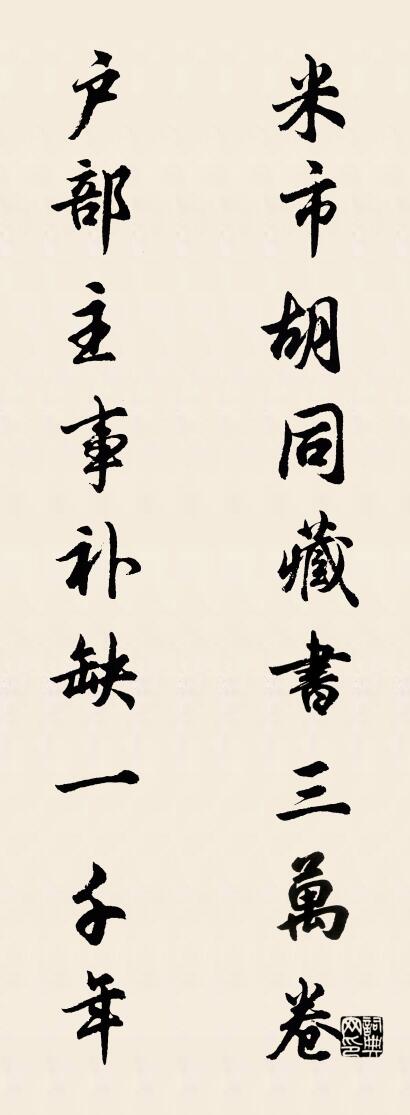 米市胡同藏書三萬卷
户部主事补缺一千年
詞典网印